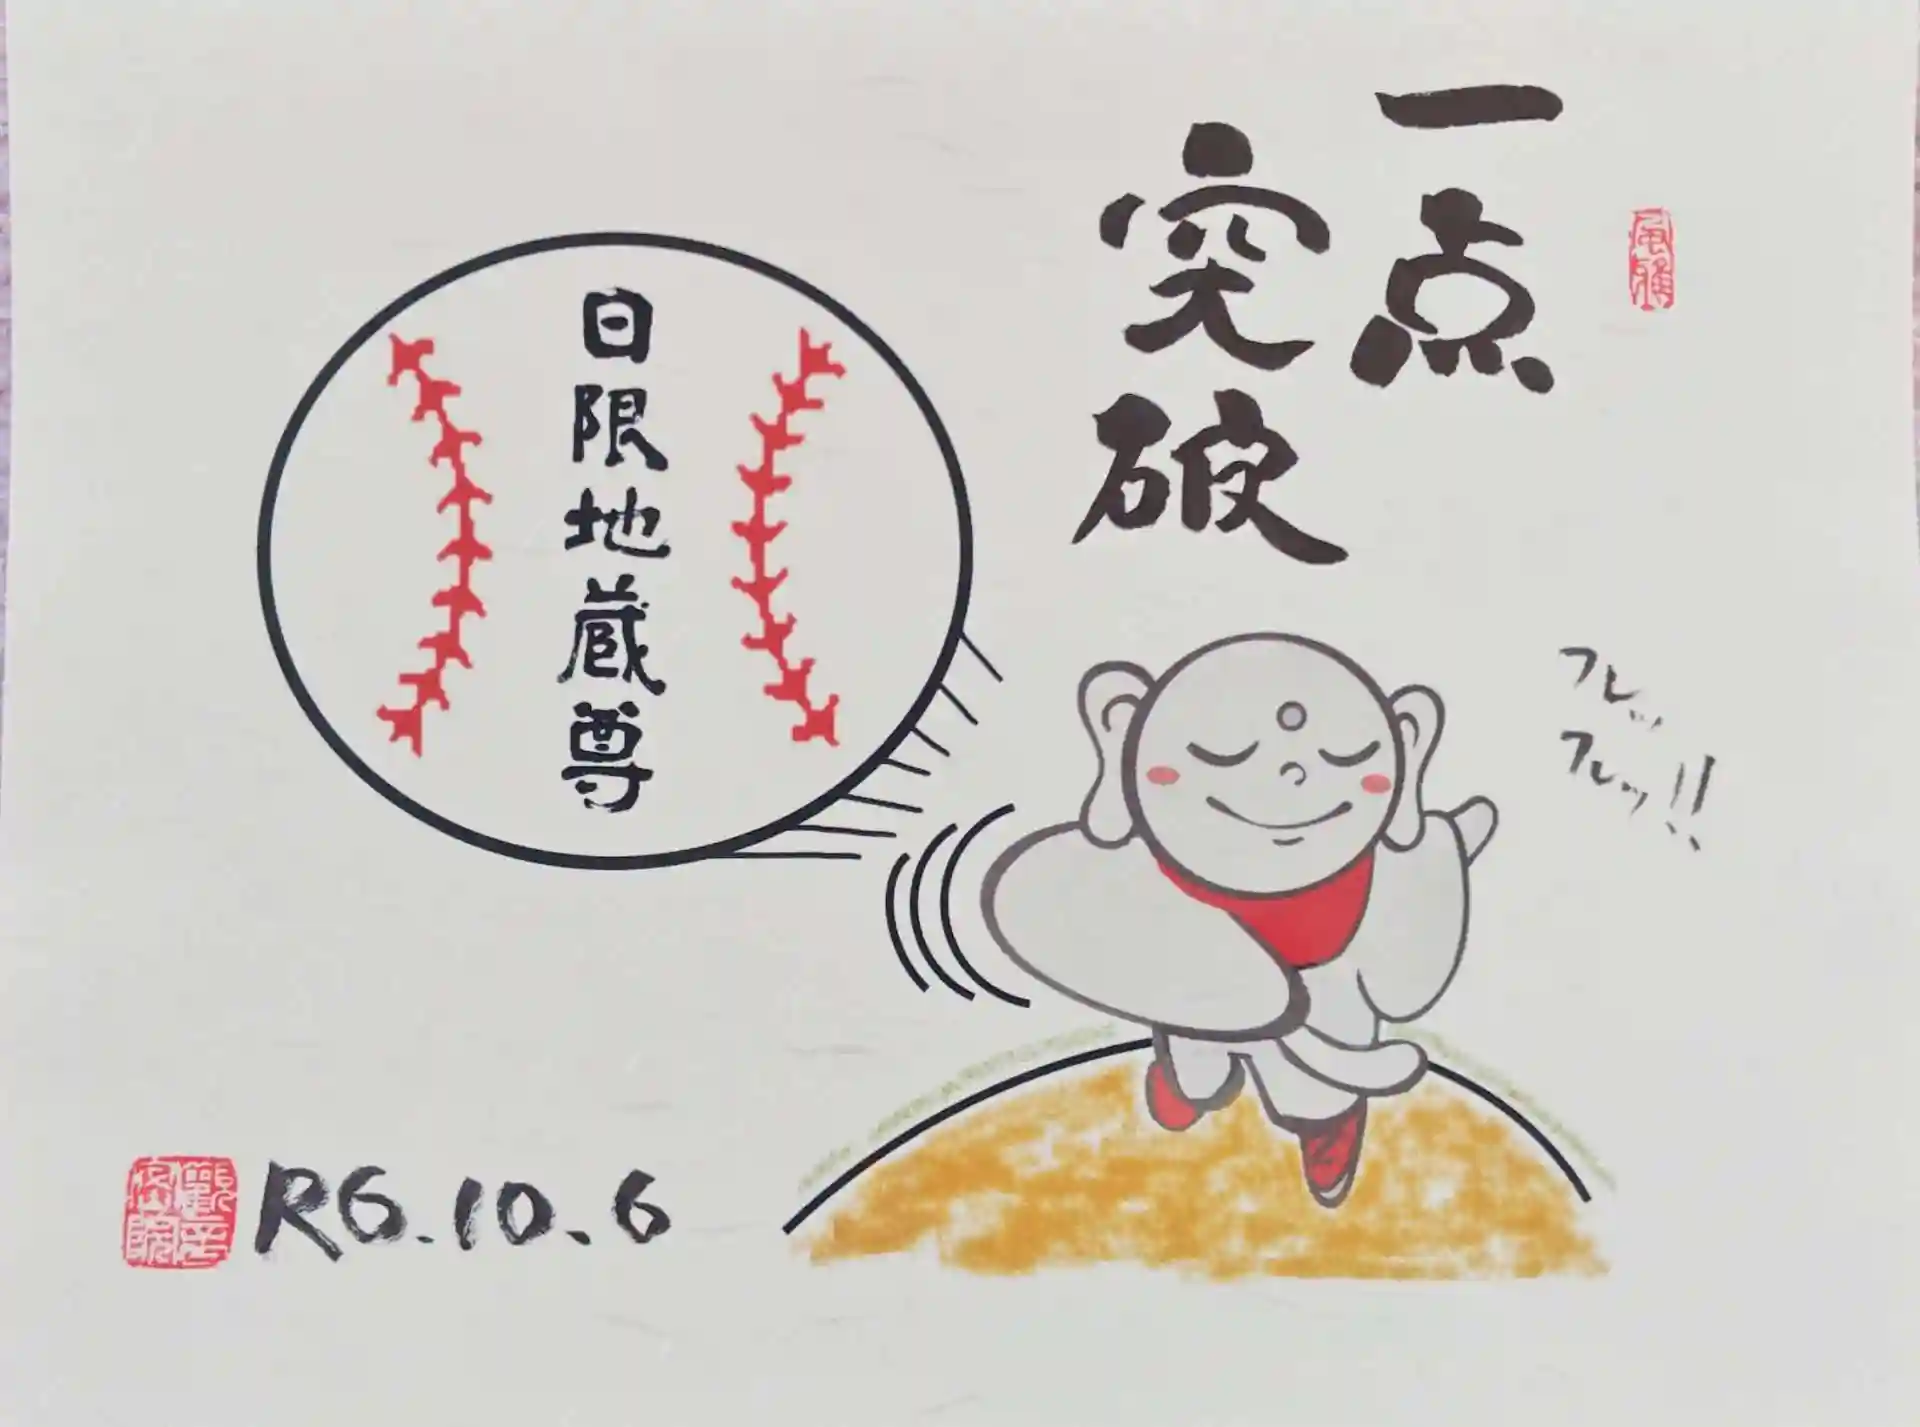 一点
突破
フレッ
フレッ!!
日限地蔵尊
R6.10.6